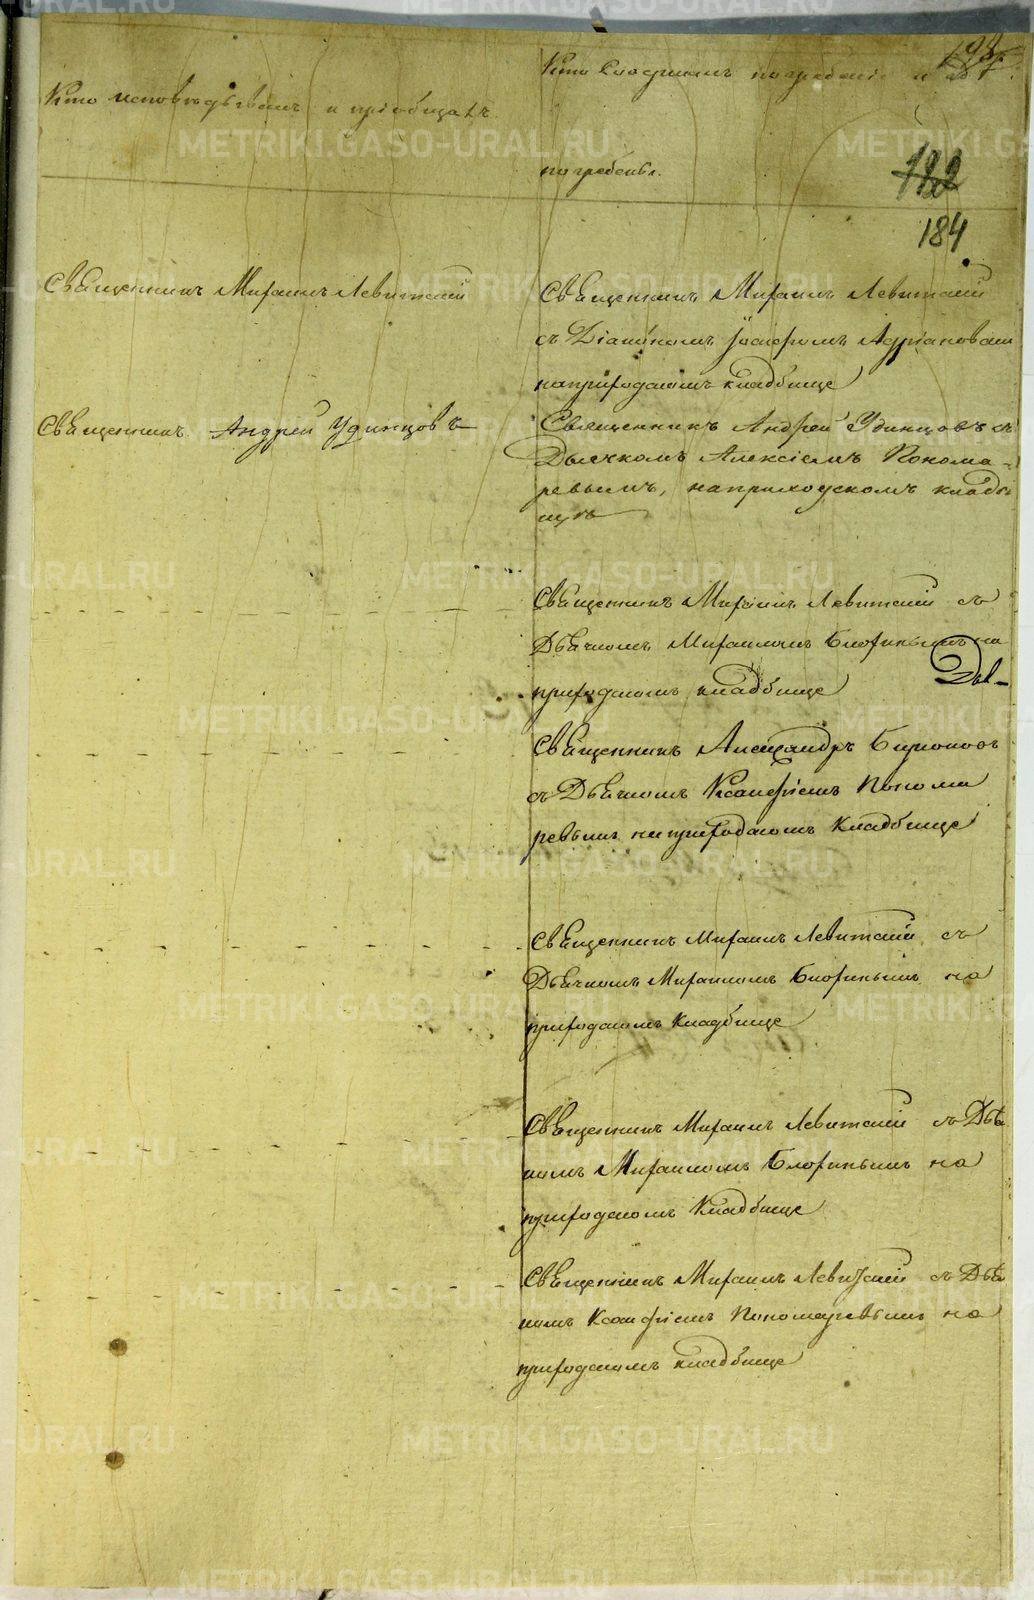 Кто исповѣдывалъ и пріобщалъ
Кто совершалъ погребеніе и гдѣ
погребены.
184
Священникъ Михаилъ Левитскій
Священникъ Михаилъ Левитскій
съ Діакономъ Іоасафомъ Адріановымъ
на приходскомъ кладбище
Священникъ Андрей Удинцовъ
Священникъ Андрей Удинцовъ съ
Дьячкомъ Алексіемъ Понома-
ревымъ, на приходскомъ кладби
щѣ
Священникъ Михаилъ Левитскій съ
Дьячкомъ Михаиломъ на
приходскомъ кладбище
Священникъ Александръ
съ Дьячкомъ Ксанфіемъ Понома
ревымъ на приходскомъ Кладбище
Священникъ Михаилъ Левитскій съ
Дьячкомъ Михаиломъ на
приходскомъ Кладбище
Священникъ Михаилъ Левитскій съ Дья
комъ Михаиломъ на
приходскомъ Кладбище
Священникъ Михаилъ Левитскій съ Дья
комъ Ксанфіемъ Пономаревымъ на
приходскомъ кладбище
METRIKI.GASO-URAL.RU